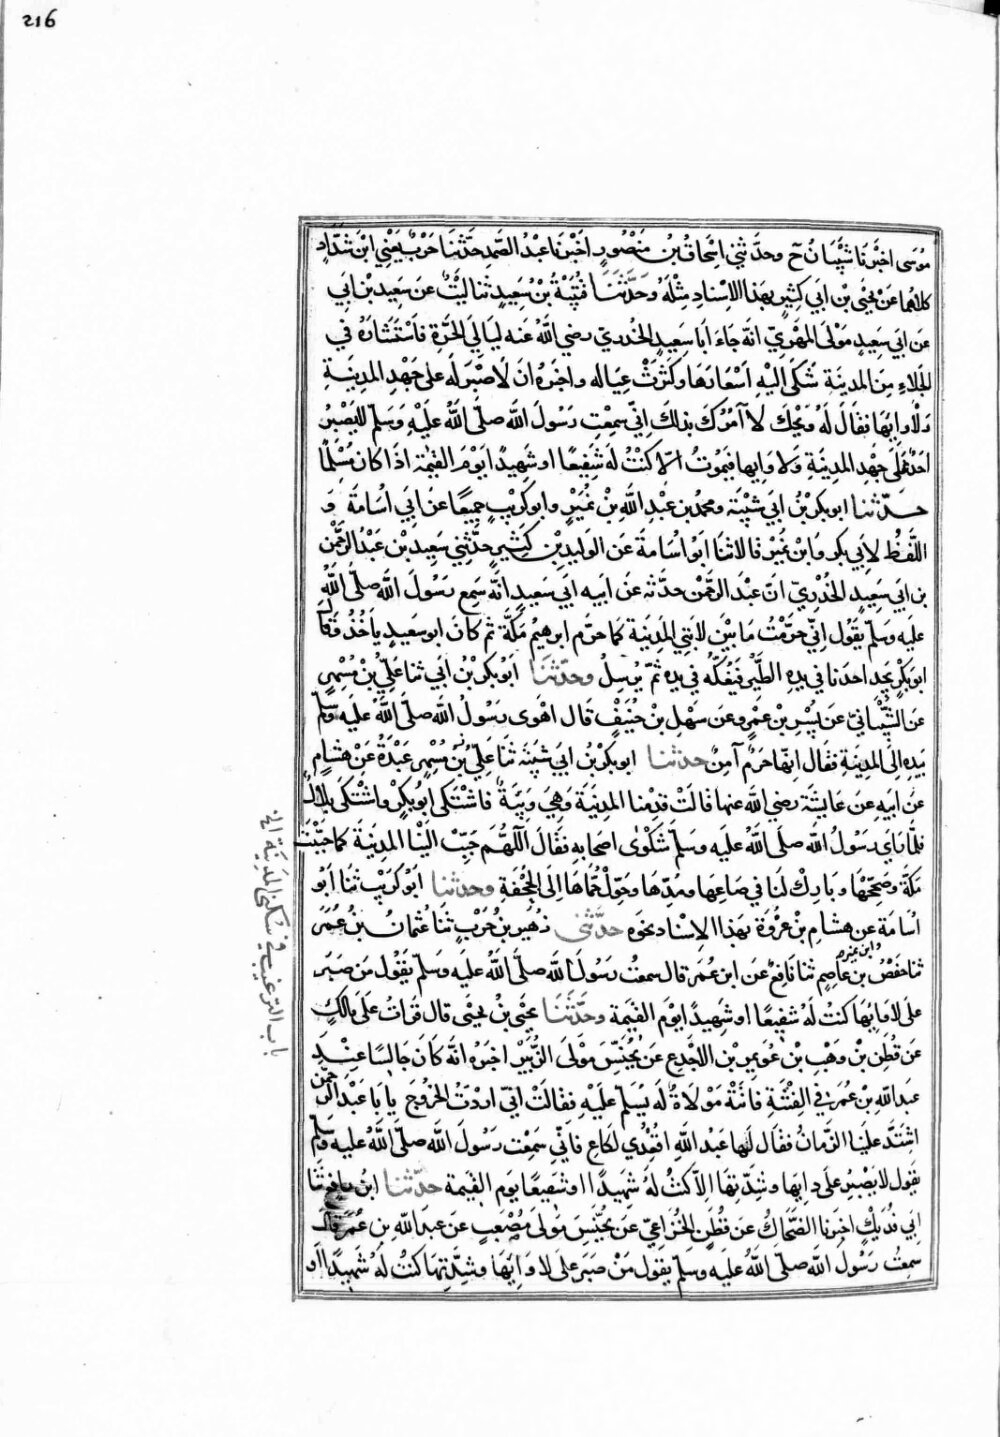 216
موسى اخبرنا شيبان ح وحدثني اسحاق بن منصور اخبرنا عبد الصمد حدثنا حرب يعني ابن شداد
كلاهما عن يحيى بن ابي كثير بهذا الاسناد مثله وحدثنا قتيبة بن سعيد ثنا ليث عن سعيد بن ابي
عن ابي سعيد مولى المهري انه جاء ابا سعيد الخدري رضي الله عنه ليالي الحرة فاستشاره في
الجلاء من المدينة شكى اليه اسعارها وكثرت عياله واخبره ان لا صبر له على جهد المدينة
ولاوايها فقال له ويحك لا آمرك بذلك اني سمعت رسول الله صلى الله عليه وسلم لا يصبر
احد على جهد المدينة ولاوايها فيموت الا كنت له شفيعا او شهيدا يوم القيمة اذا كان مسلما
حدثنا ابو بكر بن ابي شيبة ومحمد بن عبد الله بن نمير وابو كريب جميعا عن ابي اسامة و
اللفظ لابي بكر وابن نمير قالا ثنا ابو اسامة عن الوليد بن كثير حدثني سعيد بن عبد الرحمن
بن ابي سعيد الخدري ان عبد الرحمن حدثه عن ابيه ابي سعيد انه سمع رسول الله صلى الله
عليه وسلم يقول اني حرمت ما بين لابتي المدينة كما حرم ابرهيم مكة ثم كان ابو سعيد ياخذ وقال
ابو بكر يجد احدنا في يده الطير فيفكه في يده ثم يرسل وحدثنا ابو بكر بن ابي ثنا علي بن مسهر
عن الشيباني عن يسير بن عمرو عن سهل بن حنيف قال اهوى رسول الله صلى الله عليه وسلم
بيده الى المدينة فقال انها حرم آمن حدثنا ابو بكر بن ابي شيبة ثنا علي بن مسهر عبدة عن هشام
عن ابيه عن عايشة رضي الله عنها قالت قدمنا المدينة وهي وبيئة فاشتكى ابو بكر واشتكى بلال
فلما راي رسول الله صلى الله عليه وسلم شكوى اصحابه فقال اللهم حبب الينا المدينة كما حببت
مكة وصححها وبارك لنا في صاعها ومدها وحول حماها الى الجحفة وحدثنا ابو كريب ثنا ابو
اسامة عن هشام بن عروة بهذا الاسناد نحوه حدثني زهير بن حرب ثنا عثمان بن عمر
ثنا حفص بن عاصم ثنا نافع عن ابن عمر قال سمعت رسول الله صلى الله عليه وسلم يقول من صبر
على لاوائها كنت له شفيعا او شهيدا يوم القيمة وحدثنا يحيى بن يحيى قال قرات على مالك
عن قطن بن وهب بن عويمر بن الاجدع عن يحنس مولى الزبير اخبره انه كان جالسا عند
عبد الله بن عمر في الفتنة فاتته مولاة له يسلم عليه فقالت اني اردت الخروج يا با عبد الرحمن
اشتد علينا الزمان فقال لها عبد الله اقعدي لكاع فاني سمعت رسول الله صلى الله عليه وسلم
يقول لا يصبر على وايها وشدتها الا كنت له شهيدا او شفيعا يوم القيمة حدثنا ابن رافع ثنا
ابي فديك اخبرنا الضحاك عن قطن الخزاعي عن يحنس مولى مصعب عن عبد الله بن عمر قال
سمعت رسول الله صلى الله عليه وسلم يقول من صبر على لاوايها وشدتها كنت له شهيدا او
باب الترغيب في سكنى المدينة الخ